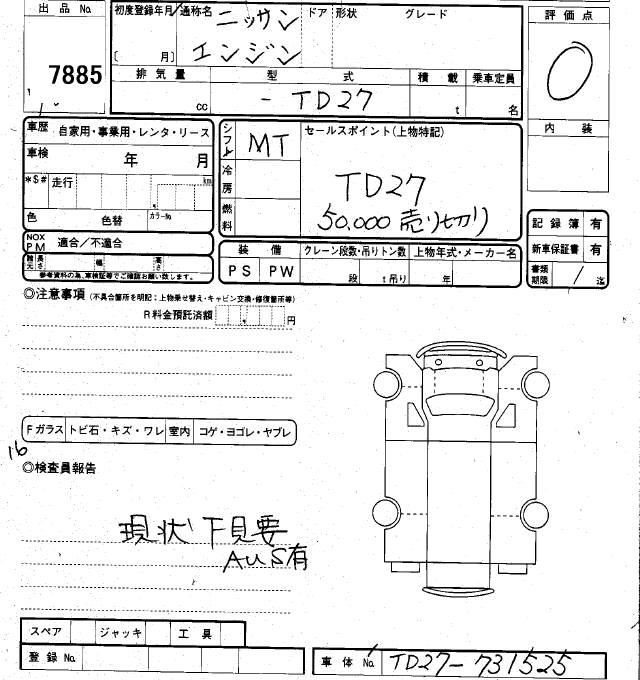 出品No. 初度登録年月 通称名 ニッサン ドア 形状 グレード 評価点
7885 〔 月〕 エンジン 0
排気量 型式 積載 乗車定員
1 cc - TD27 t 名
車歴 自家用・事業用・レンタ・リース シフト MT セールスポイント(上物特記) 内装
車検 年 月 冷房 TD27
*$# 走行 km 燃料 50.000 売り切り
色 色替 カラーNo. 記録簿 有
NOX PM 適合/不適合 装備 クレーン段数・吊りトン数 上物年式・メーカー名 新車保証書 有
諸元 長さ 幅 高さ PS PW 段 t吊り 年 書類期限 / 迄
参考資料の為、車検証等でご確認お願い致します。
◎注意事項 (不具合箇所を明記:上物乗せ替え・キャビン交換・修復箇所等)
R料金預託済額 円
Fガラス トビ石・キズ・ワレ 室内 コゲ・ヨゴレ・ヤブレ
16
◎検査員報告
現状下見要
AUS有
スペア ジャッキ 工具
登録No. 車体No. TD27-731525